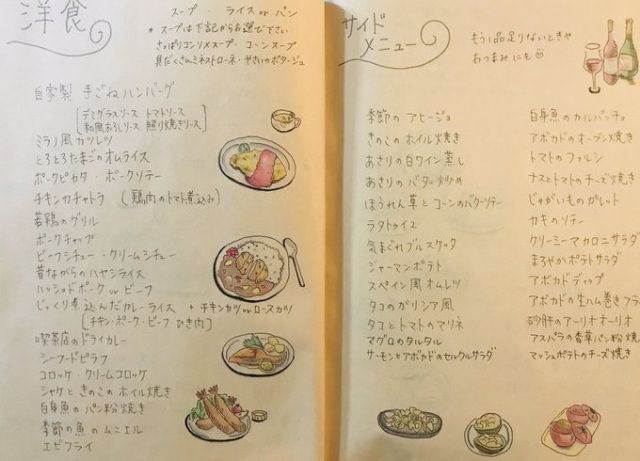 洋食
スープ・ライス or パン
* スープは下記からお選び下さい
さっぱりコンソメスープ・コーンスープ
具だくさんミネストローネ・やさいのポタージュ
自家製 手ごねハンバーグ
デミグラスソース トマトソース
和風おろしソース 照り焼きソース
ミラノ風カツレツ
とろとろたまごのオムライス
ポークピカタ・ポークソテー
チキンカチャトラ (鶏肉のトマト煮込み)
若鶏のグリル
ポークチャップ
ビーフシチュー・クリームシチュー
昔ながらのハヤシライス
ハッシュドポーク or ビーフ
じっくり煮込んだカレーライス + チキンカツ or ロースカツ
(チキン・ポーク・ビーフ・ひき肉)
喫茶店のドライカレー
シーフードピラフ
コロッケ・クリームコロッケ
シャケときのこのホイル焼き
白身魚のパン粉焼き
季節の魚のムニエル
エビフライ
サイド
メニュー
もう1品足りないときや
おつまみにも
季節のアヒージョ
きのこのホイル焼き
あさりの白ワイン蒸し
あさりのバター炒め
ほうれん草とコーンのバターソテー
ラタトゥイユ
気まぐれブルスケッタ
ジャーマンポテト
スペイン風オムレツ
タコのガリシア風
タコとトマトのマリネ
マグロのタルタル
サーモンとアボカドのセルクルサラダ
白身魚のカルパッチョ
アボカドのオーブン焼き
トマトのファルシ
ナスとトマトのチーズ焼き
じゃがいものガレット
カキのソテー
クリーミーマカロニサラダ
まろやかポテトサラダ
アボカドディップ
アボカドの生ハム巻きフライ
砂肝のアーリオオーリオ
アスパラの香草パン粉焼
マッシュポテトのチーズ焼き